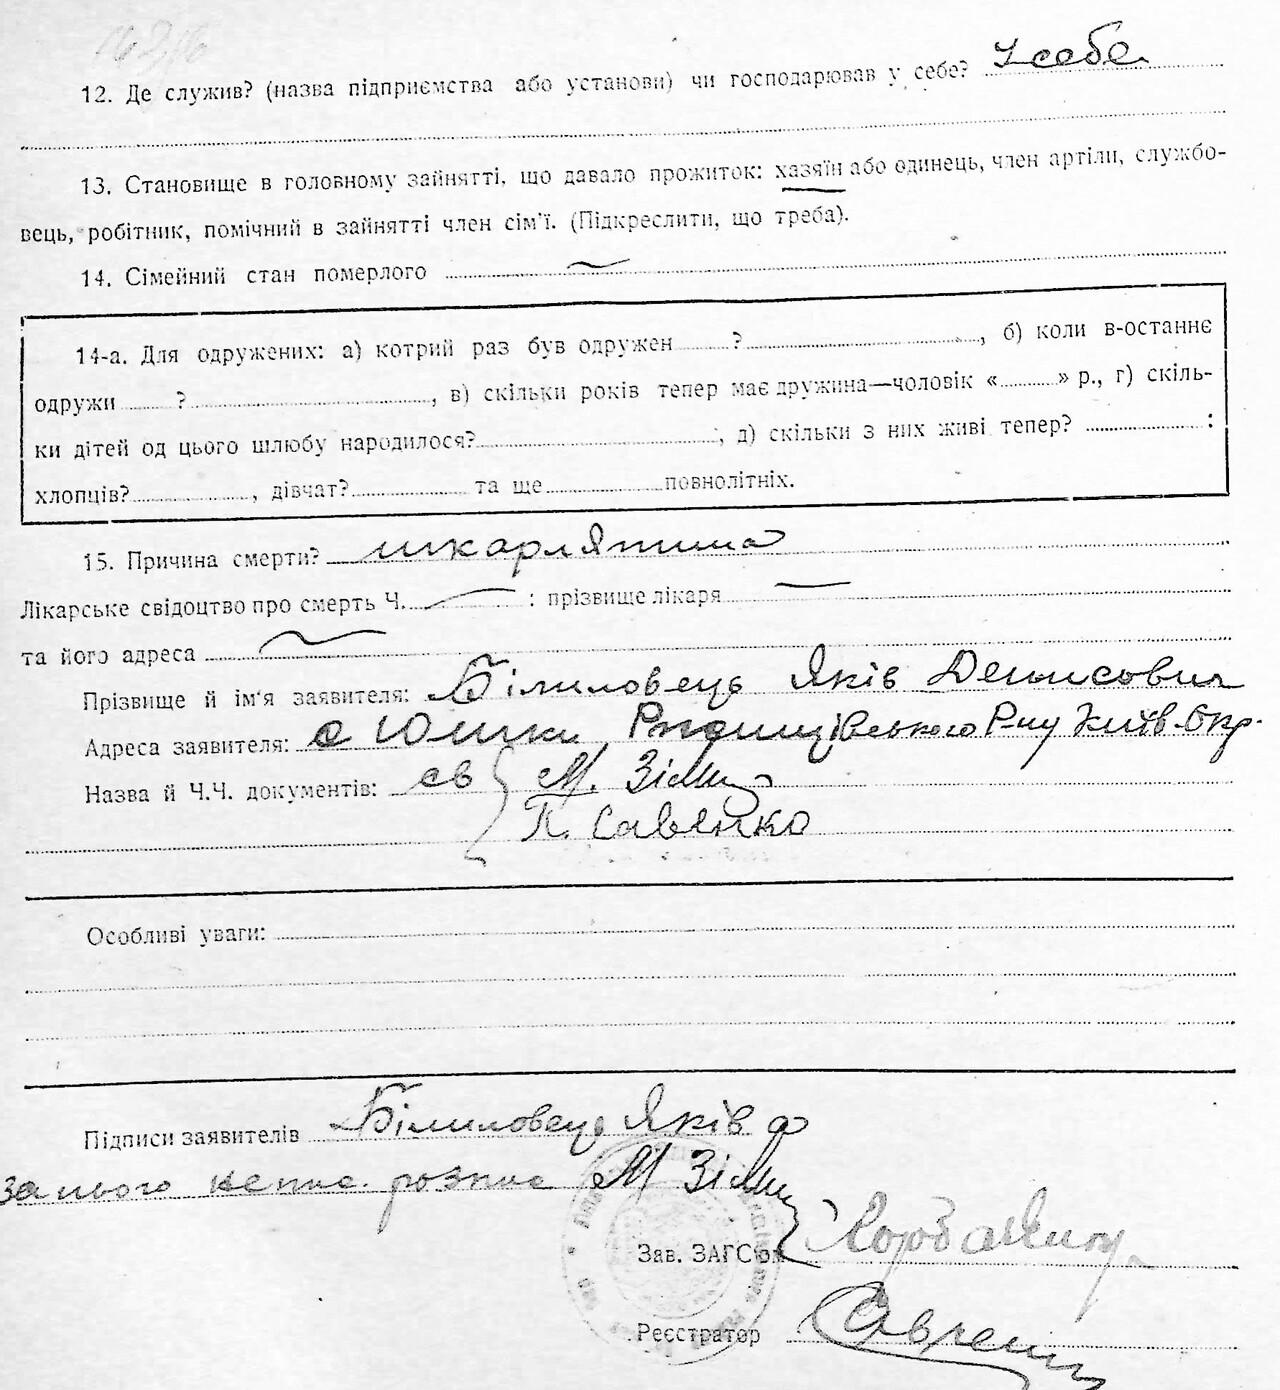 12. Де служив? (назва підприємства або установи) чи господарював у себе? У себе
13. Становище в головному зайнятті, що давало прожиток: хазяїн або одинець, член артіли, службо-
вець, робітник, помічний в зайнятті член сім'ї. (Підкреслити, що треба).
14. Сімейний стан померлого
14-а. Для одружених: а) котрий раз був одружен ? , б) коли в-останнє
одружи ? , в) скільки років тепер має дружина—чоловік « » р., г) скіль-
ки дітей од цього шлюбу народилося? , д) скільки з них живі тепер? :
хлопців? , дівчат? та ще повнолітніх.
15. Причина смерти? шкарлятина
Лікарське свідоцтво про смерть Ч. : прізвище лікаря
та його адреса
Прізвище й ім'я заявителя: Білиловець Яків Денисович
Адреса заявителя: с Юшки Ржищівського Р-ну Київ-Окр.
Назва й Ч.Ч. документів: св М.
П. Савенко
Особливі уваги:
Підписи заявителів Білиловець Яків
За нього непис. розпис М
Зав. ЗАГС'ом
Реєстратор